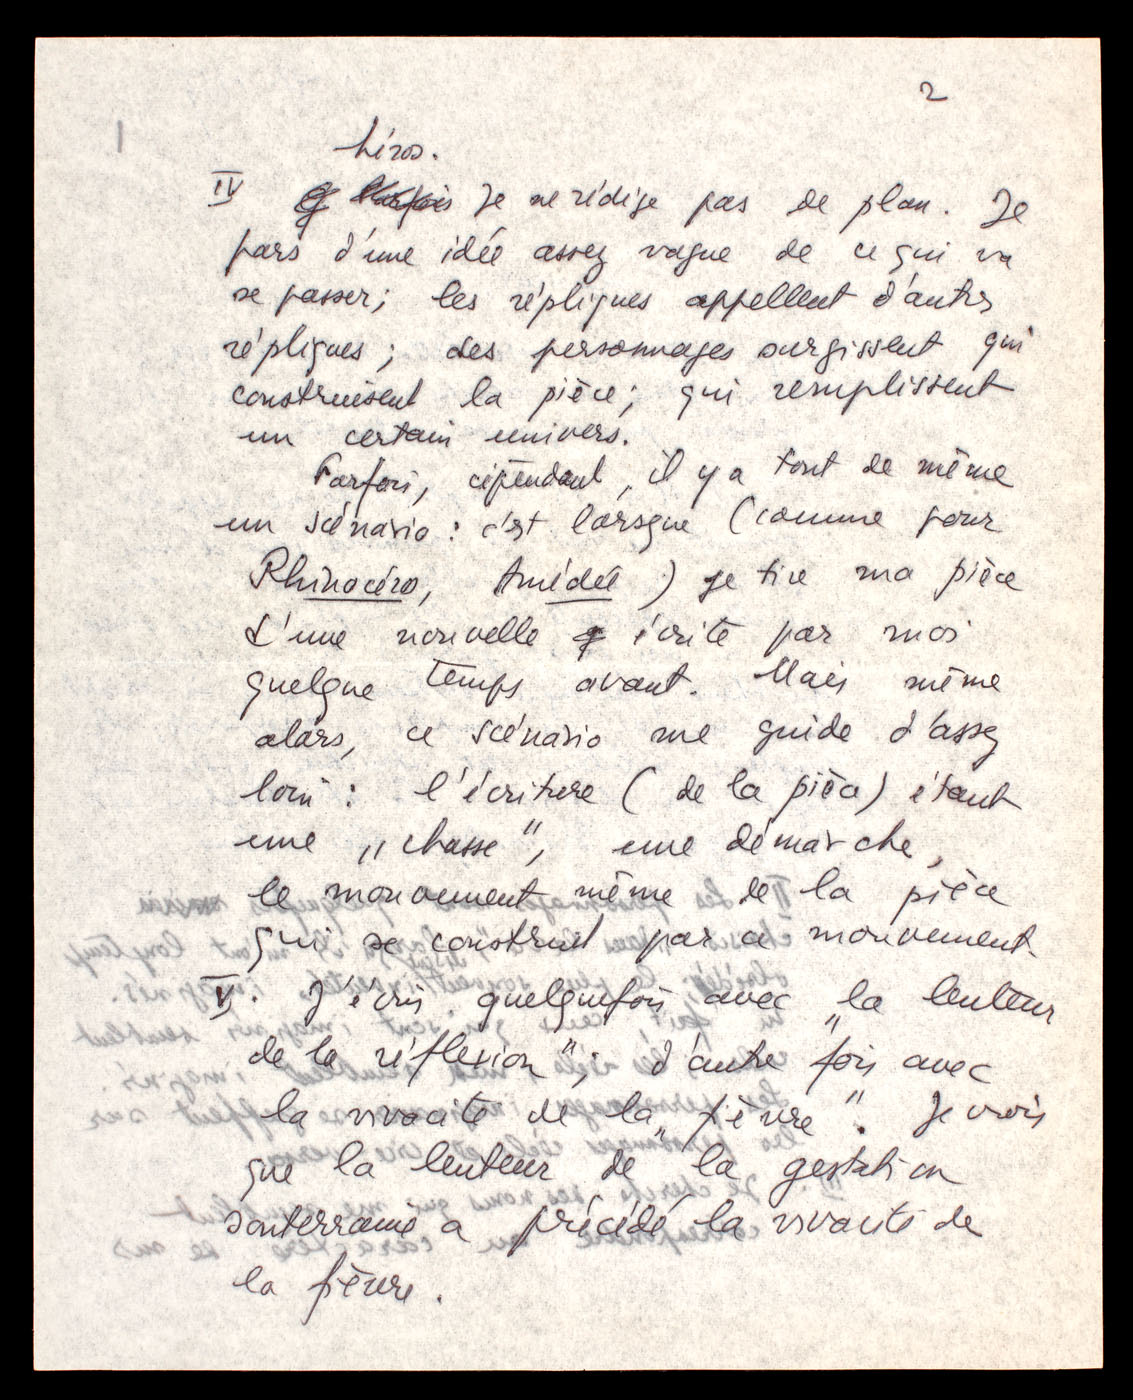 2
héros.
IV Parfois Je ne rédige pas de plan. Je
pars d'une idée assez vague de ce qui va
se passer; les répliques appellent d'autres
répliques; des personnages surgissent qui
construisent la pièce; qui remplissent
un certain univers.
Parfois, cependant, il y a tout de même
un scénario : c'est lorsque (comme pour
Rhinocéros, Amédée) je tire ma pièce
d'une nouvelle écrite par moi
quelque temps avant. Mais même
alors, ce scénario me guide d'assez
loin : l'écriture (de la pièce) étant
une „chasse", une démarche,
le mouvement même de la pièce
qui se construit par ce mouvement.
V. J'écris quelquefois avec „la lenteur
de la réflexion"; d'autre fois avec
la vivacité de la „fièvre". Je crois
que la lenteur de la gestation
souterraine a précédé la vivacité de
la fièvre.